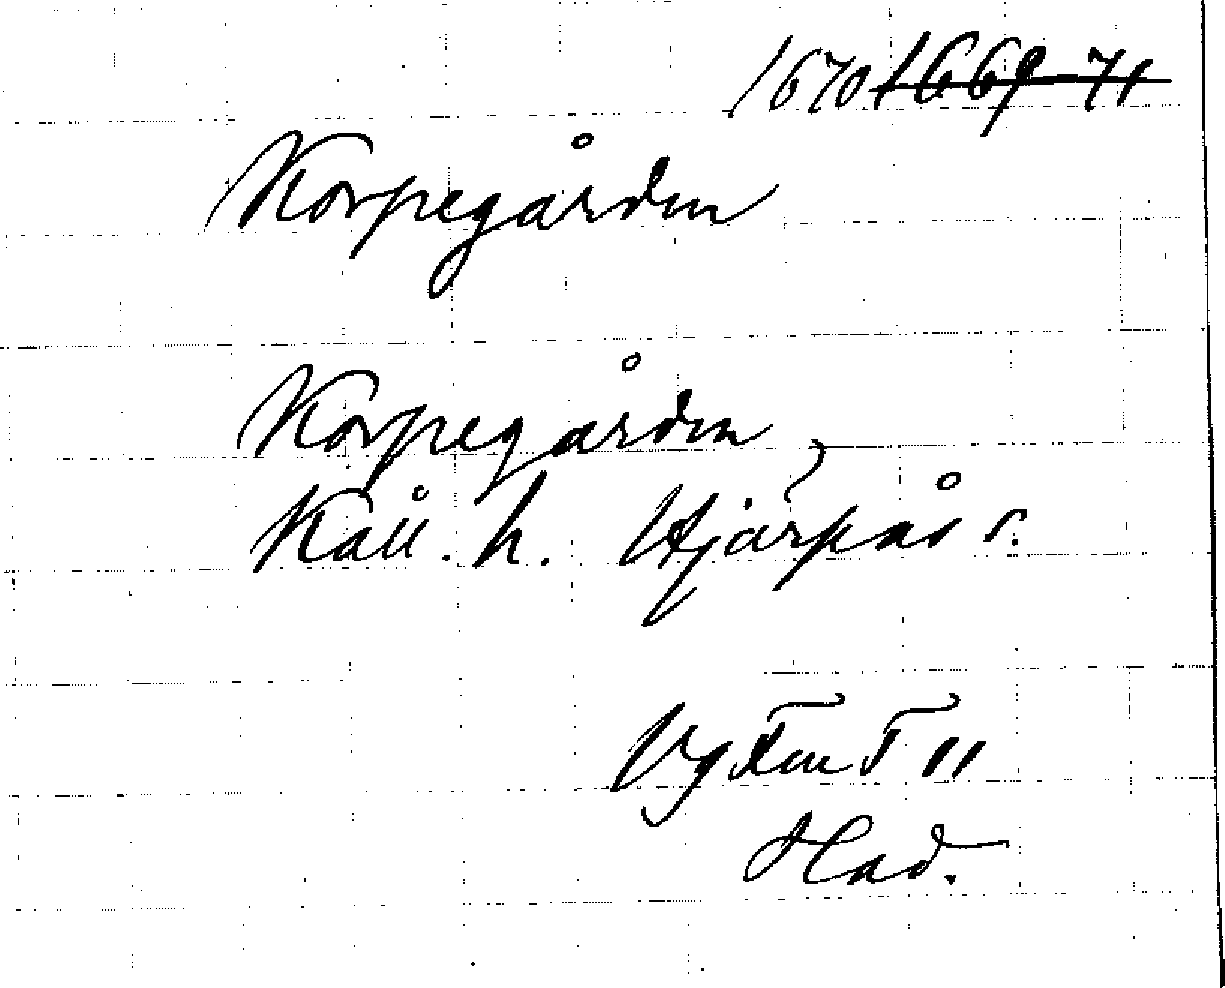 1670 1669-71
Korpegården
Korpegården,
Kåll. h. Hjärpås s.
Vg Fin T 11
Had.